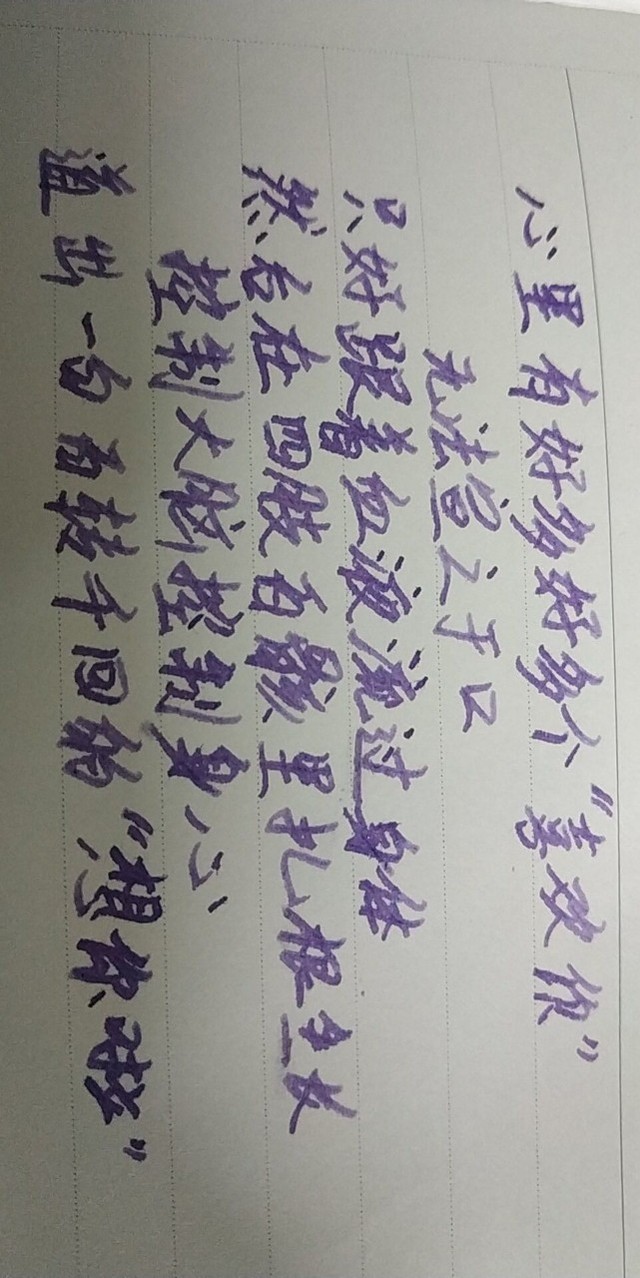 心里有好多好多个“喜欢你”
无法宣之于口
只好跟着血液流过身体
然后在四肢百骸里扎根生长
控制大脑控制身心
道出一句百转千回的“想你”